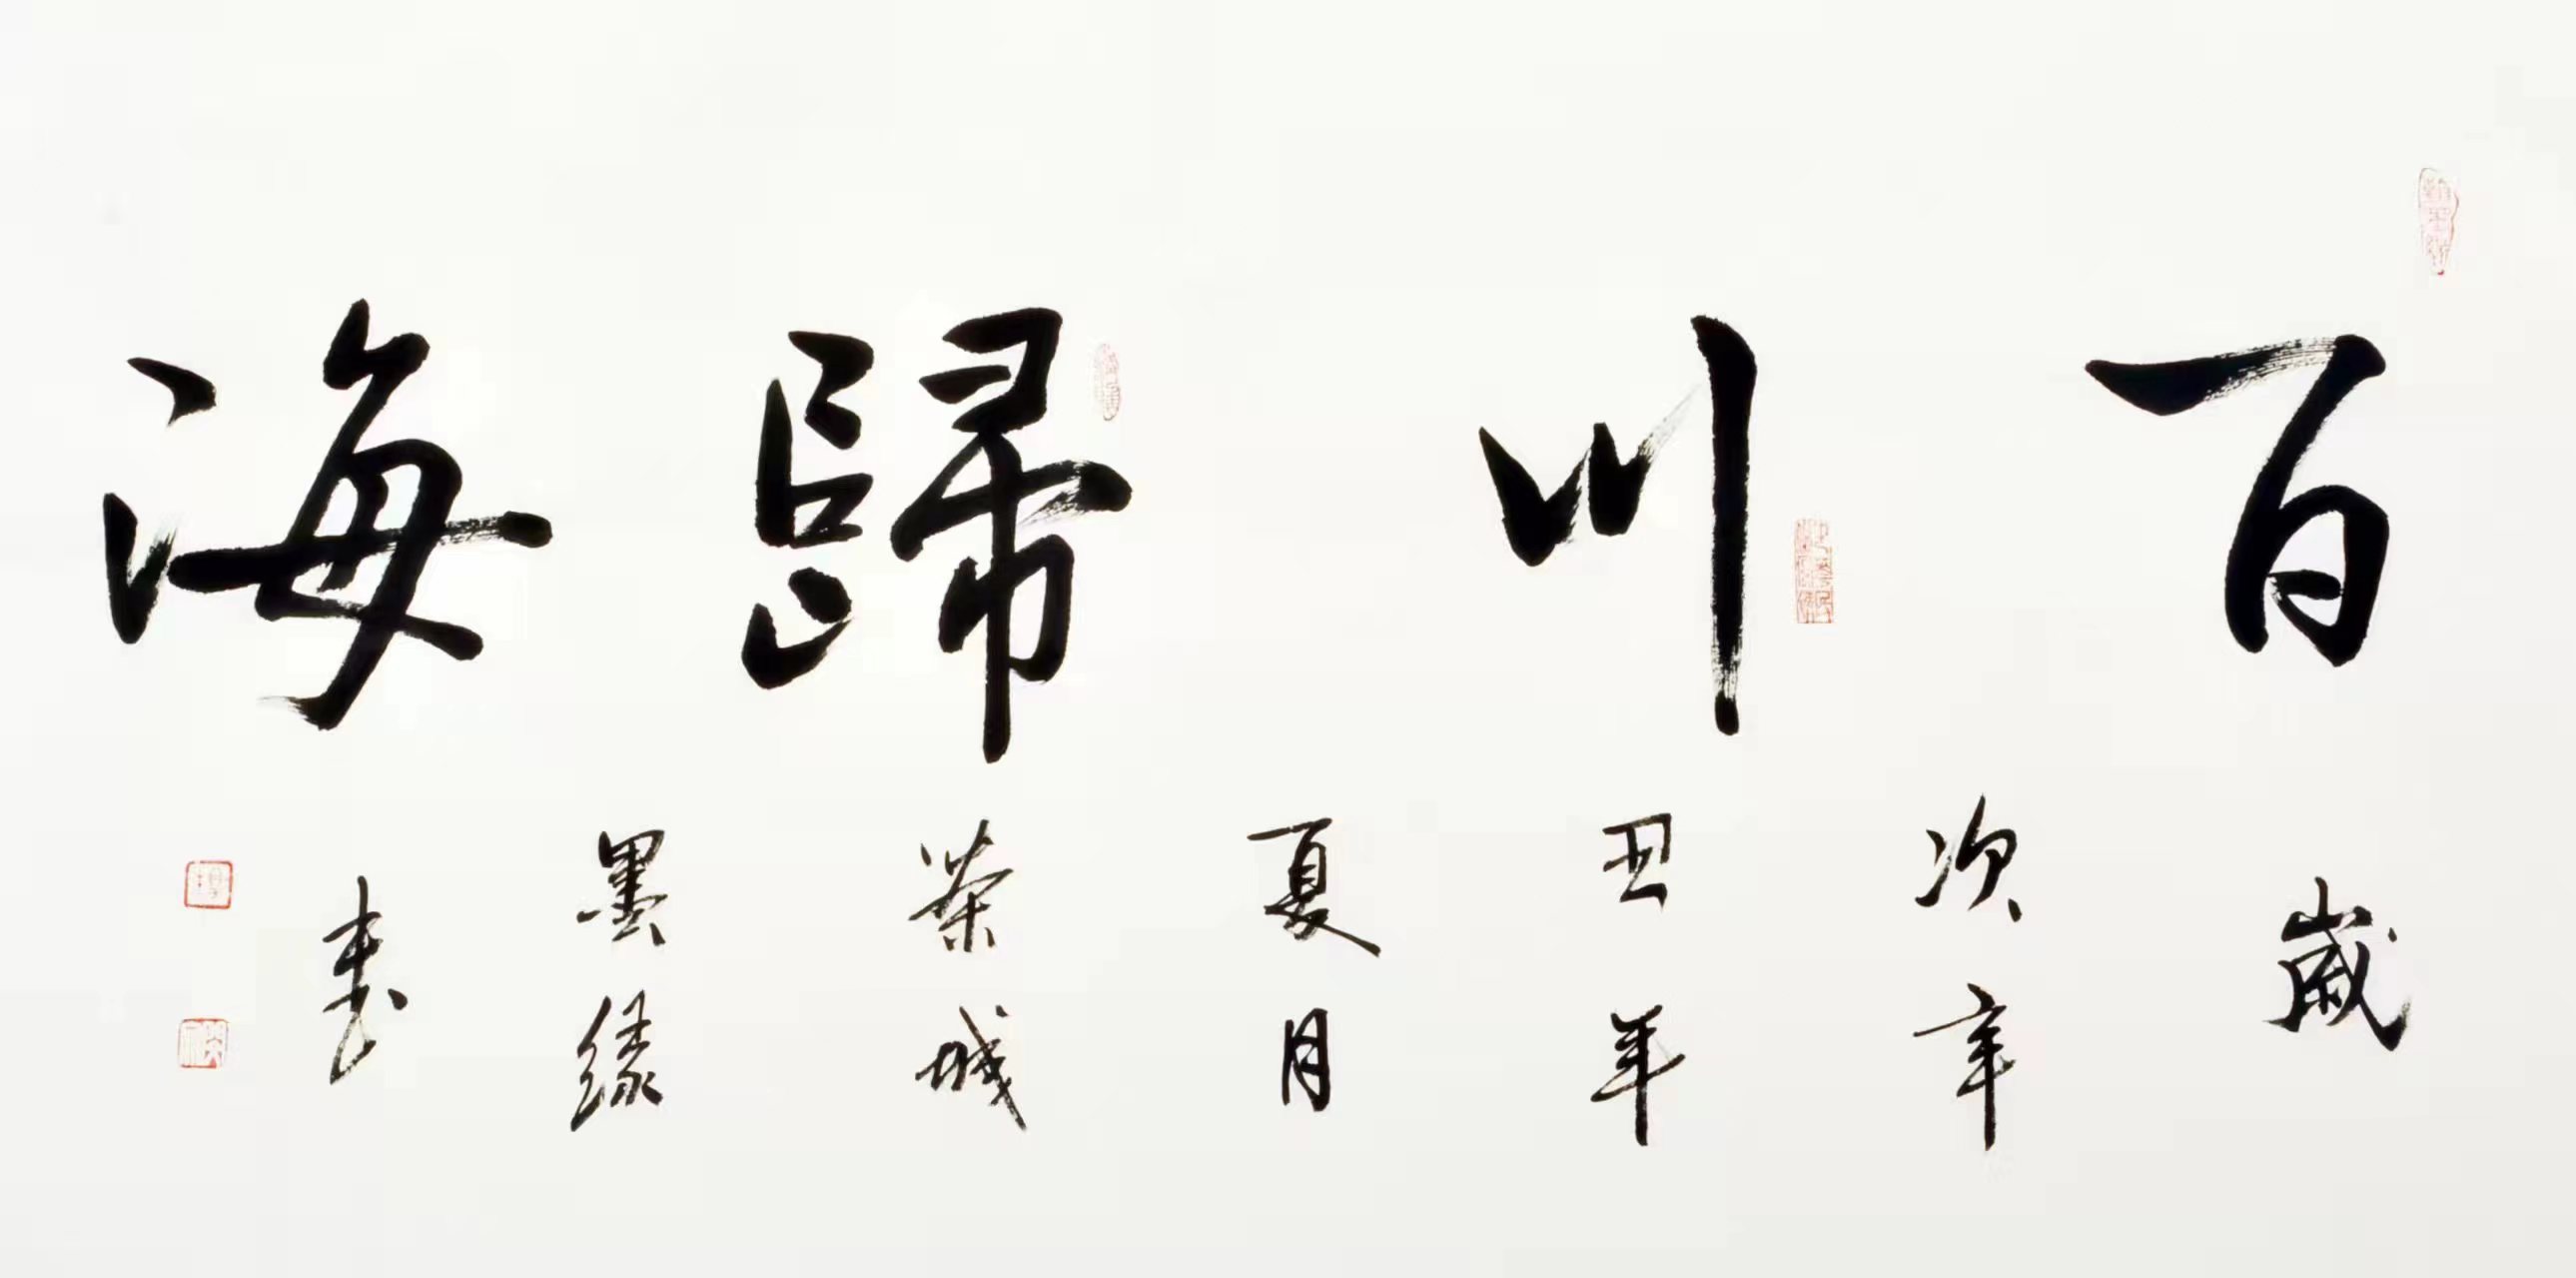 百川歸海
歲
次辛
丑年
夏月
茶城
墨緣
書